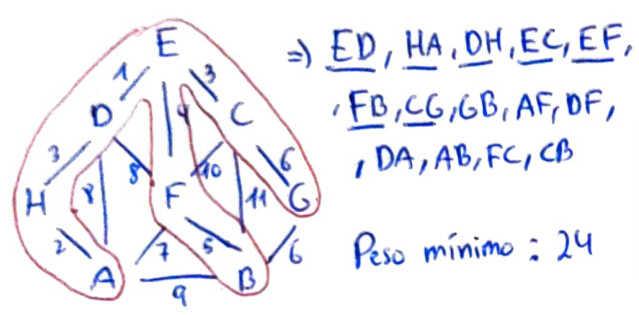 E
1 3
D 4 C
3 8 8 10 6
H F 11 G
2 7 5 6
A 9 B
=) ED, HA, DH, EC, EF,
, FB, CG, GB, AF, DF,
, DA, AB, FC, CB
Peso mínimo : 24